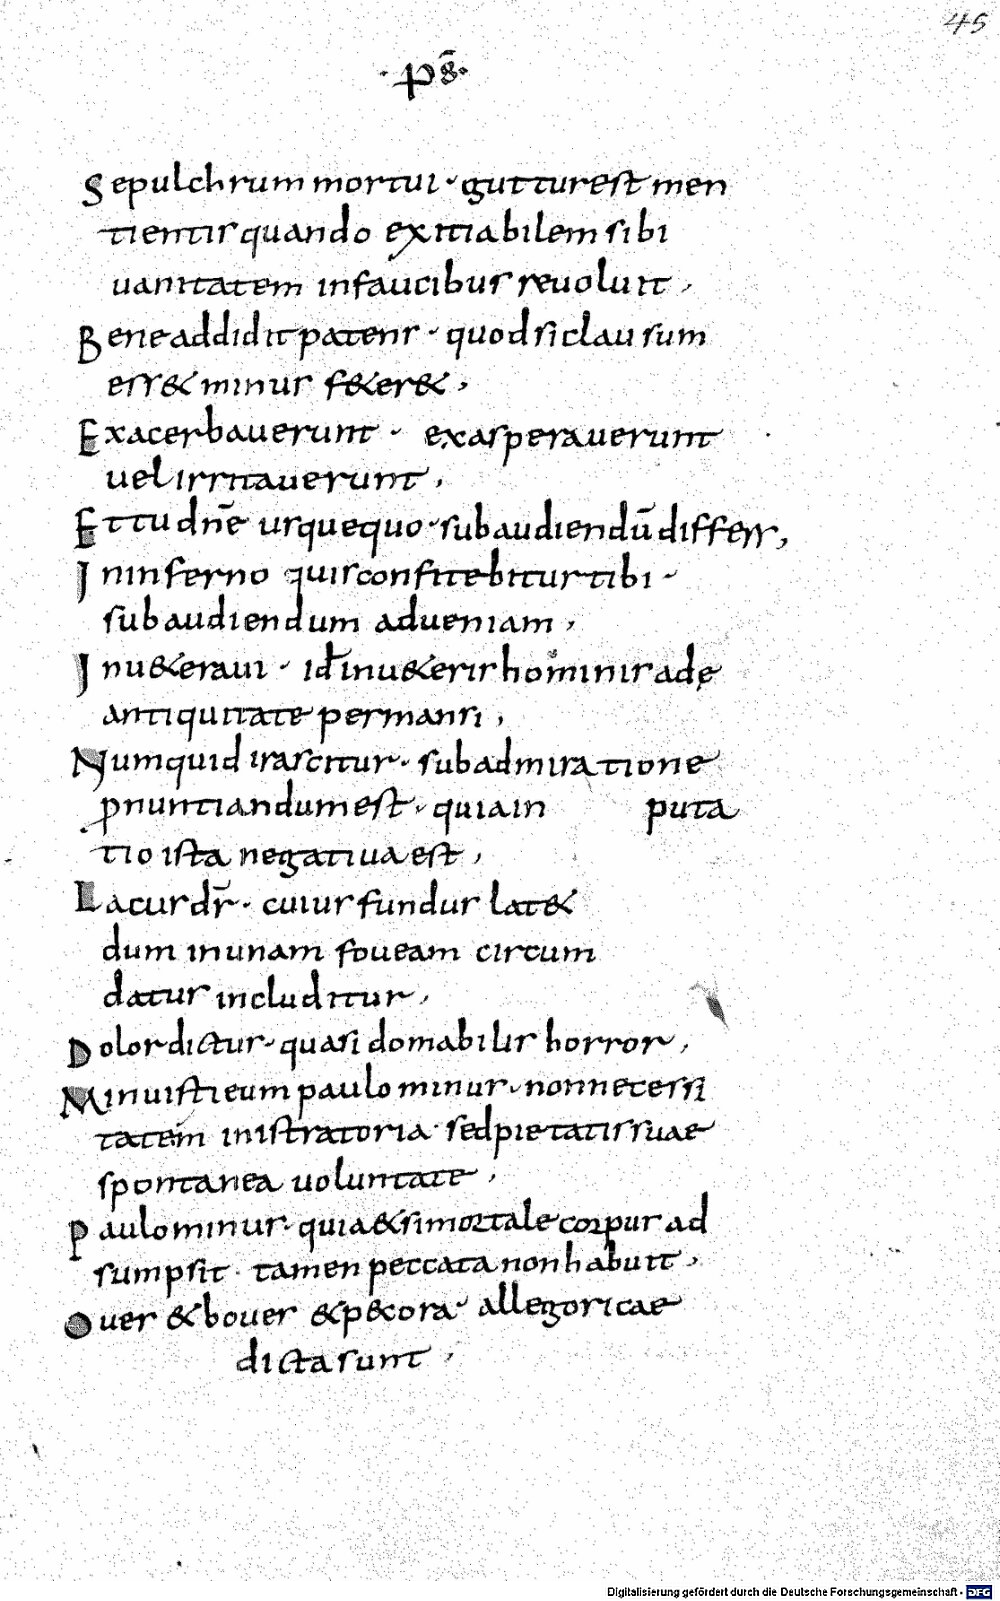 45
· ps̄ ·
Sepulchrum mortui · guttur est men
tientis quando exitiabilem sibi
vanitatem in faucibus revoluit ,
Bene addidit patens · quod si clausum
ess& minus f&er& ,
Exacerbaverunt · exasperaverunt
vel irritaverunt ,
Et tu dnē usquequo · subaudiendū differs ,
In inferno quis confitebitur tibi ·
subaudiendum adveniam ,
Inu&eravi · id̄ inu&eris hominis adę
antiquitate permansi ,
Numquid irascitur · sub admiratione
ꝓnuntiandum est · quia in puta
tio ista negativa est ,
Lacus dr̄ · cuius fundus lat&
dum in unam foveam circum
datus includitur ,
Dolor dictur · quasi domabilis horror ,
Minuisti eum paulo minus · non necessi
tatem inistratoria · sed pietatis suae
spontanea voluntate ,
Paulo minus · quia &si mortale corpus ad
sumpsit · tamen peccata non habuit ,
Oves & boves & p&cora · allegoricae
dicta sunt ,
Digitalisierung gefördert durch die Deutsche Forschungsgemeinschaft - DFG